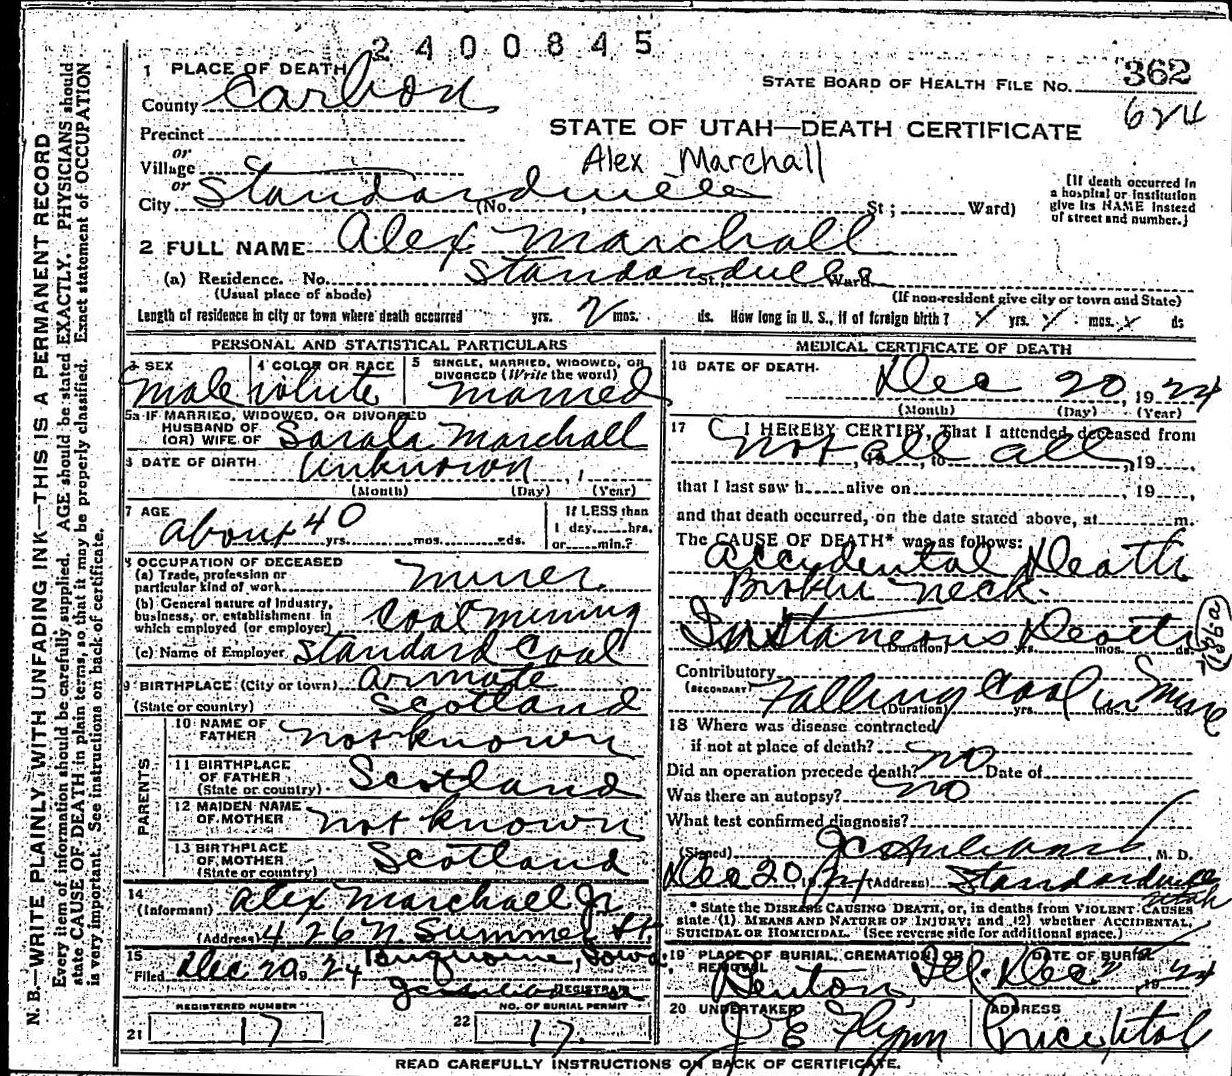 2400845
1 PLACE OF DEATH
STATE BOARD OF HEALTH FILE No. 362
County Carbon
624
Precinct
STATE OF UTAH—DEATH CERTIFICATE
or
Village
Alex Marchall
or
City Standardville (No. , St; Ward)
[If death occurred in
a hospital or institution
give its NAME instead
of street and number.]
2 FULL NAME Alex Marchall
(a) Residence. No. Standardville St., Ward.
(Usual place of abode) (If non-resident give city or town and State)
Length of residence in city or town where death occurred yrs. mos. ds. How long in U. S., if of foreign birth? yrs. mos. ds
PERSONAL AND STATISTICAL PARTICULARS
3 SEX 4 COLOR OR RACE 5 SINGLE, MARRIED, WIDOWED, OR
DIVORCED (Write the word)
male white married
5a IF MARRIED, WIDOWED, OR DIVORCED
HUSBAND OF
(OR) WIFE OF Sarah Marchall
6 DATE OF BIRTH Unknown
(Month) (Day) (Year)
7 AGE If LESS than
about 40 1 day hrs.
yrs. mos. ds. or min.?
8 OCCUPATION OF DECEASED
(a) Trade, profession or
particular kind of work miner
(b) General nature of Industry,
business, or establishment in
which employed (or employer) Coal mining
(c) Name of Employer Standard Coal
9 BIRTHPLACE (City or town)
(State or country) Scotland
PARENTS
10 NAME OF
FATHER not known
11 BIRTHPLACE
OF FATHER
(State or country) Scotland
12 MAIDEN NAME
OF MOTHER not known
13 BIRTHPLACE
OF MOTHER
(State or country) Scotland
14
(Informant) Alex Marchall Jr
(Address) 426 N. Summer St
Iowa
15
Filed Dec 20, 1924
REGISTRAR
REGISTERED NUMBER NO. OF BURIAL PERMIT
21 17 22 17.
MEDICAL CERTIFICATE OF DEATH
16 DATE OF DEATH
Dec 20, 1924
(Month) (Day) (Year)
17 I HEREBY CERTIFY, That I attended deceased from
not at all, 19
that I last saw h alive on , 19
and that death occurred, on the date stated above, at m.
The CAUSE OF DEATH* was as follows:
Accidental Death
Broken neck.
Instaneous Death
(Duration) yrs. mos. ds.
Contributory
(SECONDARY) Falling Coal in Mine
(Duration) yrs. mos.
18 Where was disease contracted
if not at place of death?
no
Did an operation precede death? no Date of
Was there an autopsy? no
What test confirmed diagnosis?
(Signed) M. D.
Dec 20, 24 (Address) Standardville
Utah
* State the DISEASE CAUSING DEATH, or, in deaths from VIOLENT CAUSES
state (1) MEANS AND NATURE OF INJURY; and (2) whether ACCIDENTAL,
SUICIDAL OR HOMICIDAL. (See reverse side for additional space.)
19 PLACE OF BURIAL, CREMATION OR
REMOVAL DATE OF BURIAL
Benton, Ill. Dec 2 1924
20 UNDERTAKER ADDRESS
J E Flynn Price Utah
READ CAREFULLY INSTRUCTIONS ON BACK OF CERTIFICATE.
N. B.—WRITE PLAINLY, WITH UNFADING INK—THIS IS A PERMANENT RECORD
Every item of information should be carefully supplied. AGE should be stated EXACTLY. PHYSICIANS should
state CAUSE OF DEATH in plain terms, so that it may be properly classified. Exact statement of OCCUPATION
is very important. See instructions on back of certificate.